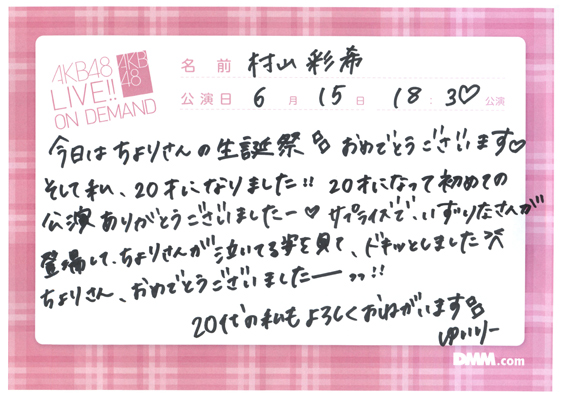 AKB48
LIVE!!
ON DEMAND
AKB
48
名前 村山彩希
公演日 6月15日 18:30公演
今日はちよりさんの生誕祭 おめでとうございます♡
そして私、20才になりました!! 20才になって初めての
公演ありがとうございましたー♡ サプライズで、いずりなさんが
登場して、ちよりさんが泣いてる姿を見て、ドキッとしました
ちよりさん、おめでとうございましたーッッ!!
20代の私もよろしくおねがいします
ゆいりー
DMM.com